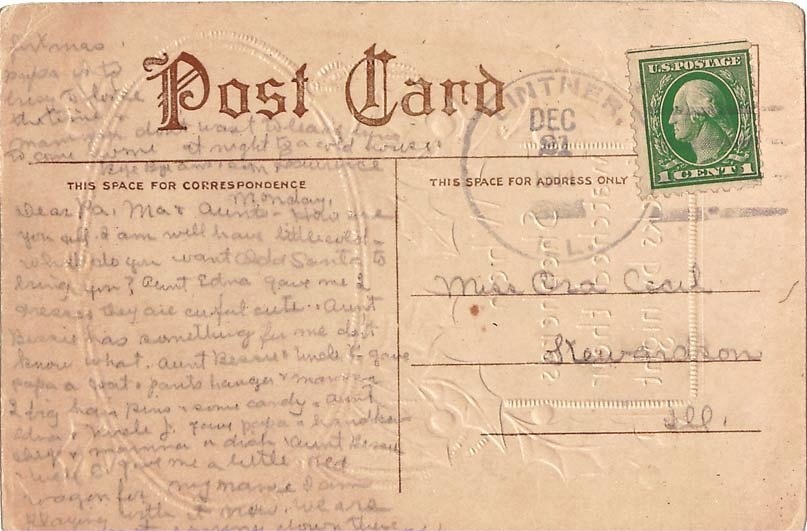 Post Card
LINTNER,
DEC
21
ILL.
U.S. POSTAGE
1 CENT 1
papa is to
busy to leave
the time &
mamma don't want to leave
to come home at night to a cold house.
THIS SPACE FOR CORRESPONDENCE
THIS SPACE FOR ADDRESS ONLY
Monday,
Dear Pa, Ma & Aunts - How are
you all. I am well have little cold -
what do you want Old Santa to
bring you? Aunt Edna gave me 2
dresses they are awful cute. Aunt
Bessie has something for me don't
know what. Aunt Bessie & Uncle E gave
papa a coat & pants hanger & mamma
2 big hair pins & some candy & Aunt
Edna & Uncle J. gave papa a handker
chief & mamma a dish. Aunt Bessie
Uncle E. gave me a little red
wagon for my name I am
playing with it now. We are
down there
Miss Ora Cecil
Stewardson
Ill.